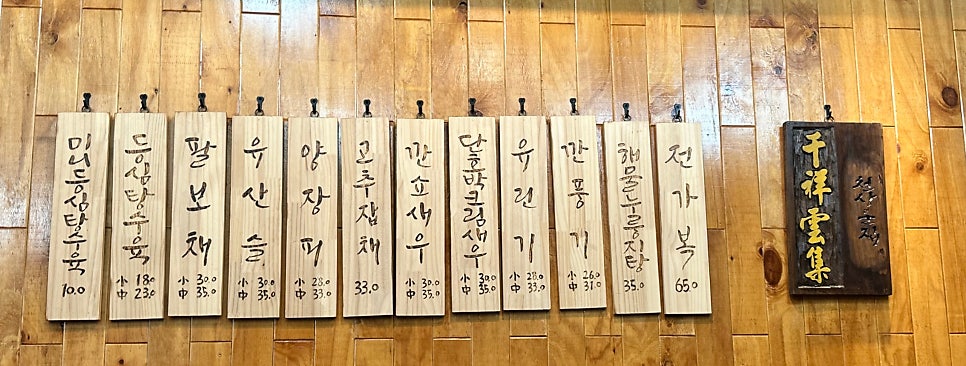 미니등심탕수육
10.0
등심탕수육
小 18.0
中 23.0
팔보채
小 30.0
中 35.0
유산슬
小 30.0
中 35.0
양장피
小 28.0
中 33.0
고추잡채
33.0
깐쇼새우
小 30.0
中 35.0
단호박크림새우
小 30.0
中 35.0
유린기
小 28.0
中 33.0
깐풍기
小 26.0
中 31.0
해물누룽지탕
35.0
전가복
65.0
千祥雲集